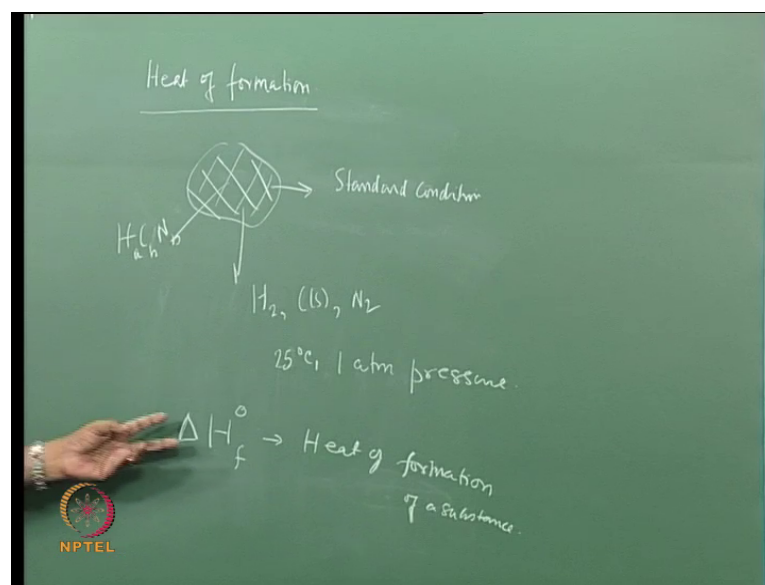 Heat of formation
Standard Condition
HaCbN
H2, C(s), N2
25°C, 1 atm pressure.
ΔH°f → Heat of formation
of a substance.
NPTEL